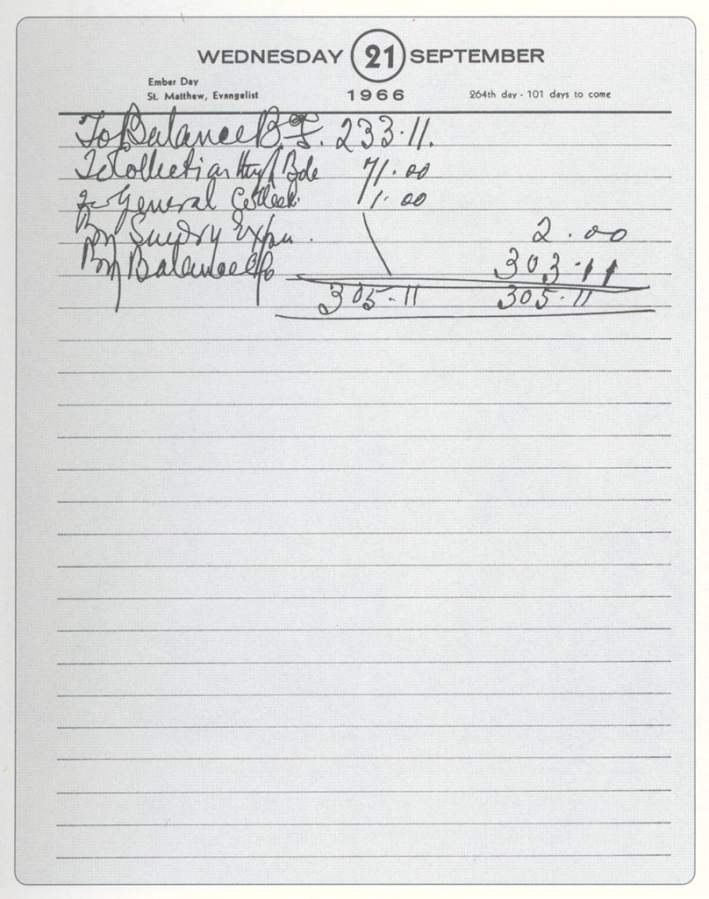 WEDNESDAY 21 SEPTEMBER
Ember Day
St. Matthew, Evangelist
1966
264th day - 101 days to come
To Balance B. F. 233.11.
To Collection 71.00
To General Collect. 1.00
By Sundry Expen. 2.00
By Balance c/o 303.11
305-11 305.11